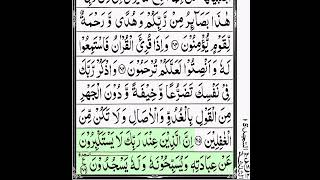 هٰذَا بَصَآئِرُ مِنْ رَّبِّكُمْ وَهُدًى وَّرَحْمَةٌ
لِّقَوْمٍ يُّؤْمِنُوْنَ ۝۲۰۳ وَاِذَا قُرِئَ الْقُرْاٰنُ فَاسْتَمِعُوْا
لَهٗ وَاَنْصِتُوْا لَعَلَّكُمْ تُرْحَمُوْنَ ۝۲۰۴ وَاذْكُرْ رَّبَّكَ
فِيْ نَفْسِكَ تَضَرُّعًا وَّخِيْفَةً وَّدُوْنَ الْجَهْرِ
مِنَ الْقَوْلِ بِالْغُدُوِّ وَالْاٰصَالِ وَلَا تَكُنْ مِّنَ
الْغٰفِلِيْنَ ۝۲۰۵ اِنَّ الَّذِيْنَ عِنْدَ رَبِّكَ لَا يَسْتَكْبِرُوْنَ
عَنْ عِبَادَتِهٖ وَيُسَبِّحُوْنَهٗ وَلَهٗ يَسْجُدُوْنَ